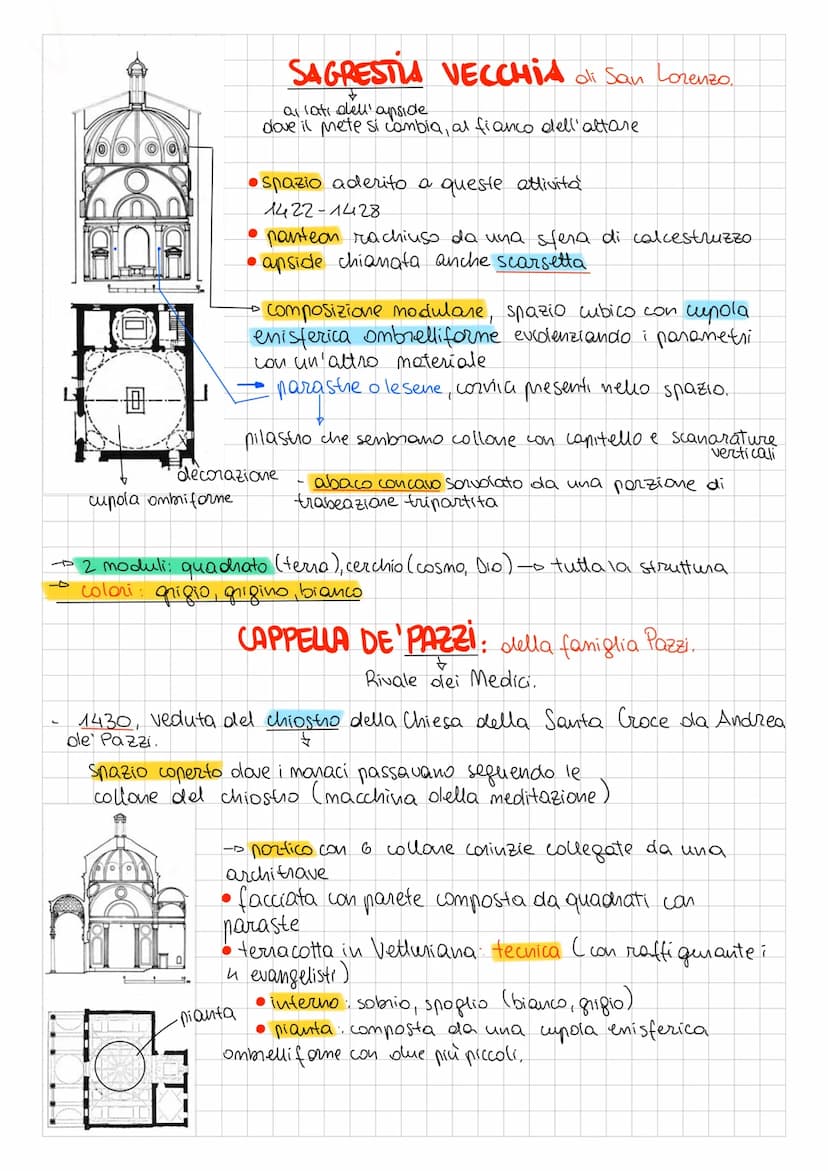 SAGRESTIA VECCHIA di San Lorenzo.
ai lati dell'apside
dove il prete si cambia, al fianco dell'altare
• spazio aderito a queste attività
1422-1428
• panteon rachiuso da una sfera di calcestruzzo
• apside chiamata anche scarsetta
composizione modulare, spazio cubico con cupola
emisferica ombrelliforme evidenziando i parametri
con un'altro materiale
→ parastre o lesene, cornici presenti nello spazio.
pilastro che sembrano collone con capitello e scanarature
verticali
decorazione
cupola ombriforme
- abaco concavo sorvolato da una porzione di
trabeazione tripartita
→ 2 moduli: quadrato (terra), cerchio (cosmo, Dio) → tutta la struttura
→ colori: grigio, grigino, bianco
CAPPELLA DE' PAZZI: della famiglia Pazzi.
Rivale dei Medici.
- 1430, veduta del chiostro della Chiesa della Santa Croce da Andrea
de' Pazzi.
Spazio coperto dove i monaci passavano seguendo le
collone del chiostro (macchina della meditazione)
→ portico con 6 collone corinzie collegate da una
architrave
• facciata con parete composta da quadrati con
paraste
• terracotta in Vetluriana: tecnica (con raffigurante i
4 evangelisti)
• interno: sobrio, spoglio (bianco, grigio)
pianta
• pianta: composta da una cupola emisferica
ombrelliforme con due più piccoli.